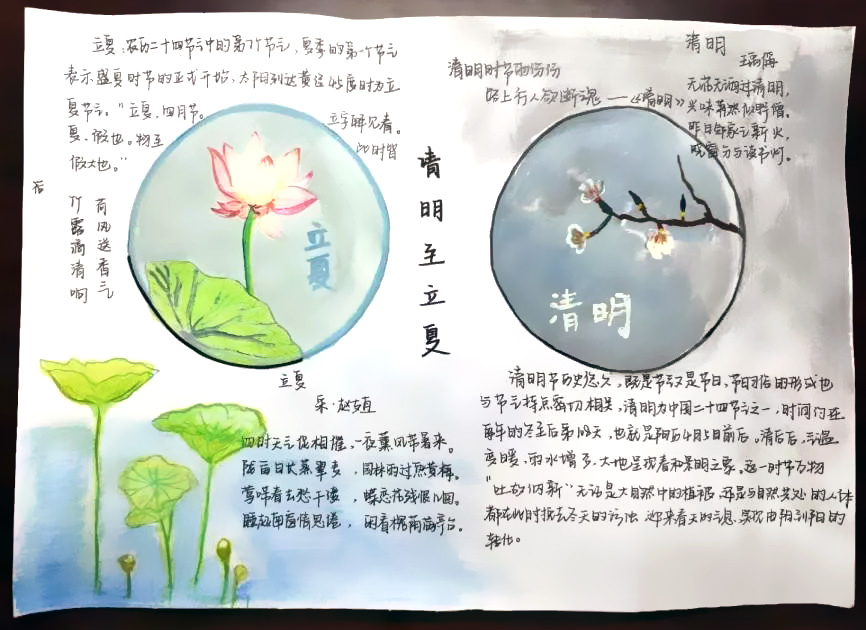 立夏:农历二十四节气中的第7个节气,夏季的第一个节气
表示盛夏时节的正式开始,太阳到达黄经45度时为立
夏节气。"立夏,四月节。
立字解见春。
夏,假也。物至
此时皆
假大也。"
荷风送香气
竹露滴清响
立夏
立夏
宋·赵友直
四时天气促相催,一夜薰风带暑来。
陇亩日长蒸翠麦,园林雨过熟黄梅。
莺啼春去愁千缕,蝶恋花残恨几回。
睡起南窗情思倦,闲看槐荫满亭台。
清明至立夏
清明时节雨纷纷
路上行人欲断魂——《清明》
清明
王禹偁
无花无酒过清明,
兴味萧然似野僧。
昨日邻家乞新火,
晓窗分与读书灯。
清明
清明节历史悠久,既是节气又是节日,节日习俗的形成也
与节气特点密切相关,清明为中国二十四节气之一,时间约在
每年的冬至后第108天,也就是阳历4月5日前后。清明后,气温
变暖,雨水增多,大地呈现春和景明之象。这一时节万物
"吐故纳新"无论是大自然中的植被,还是与自然共处的人体
都在此时换去冬天的污浊,迎来春天的气息,实现由阴到阳的
转化。